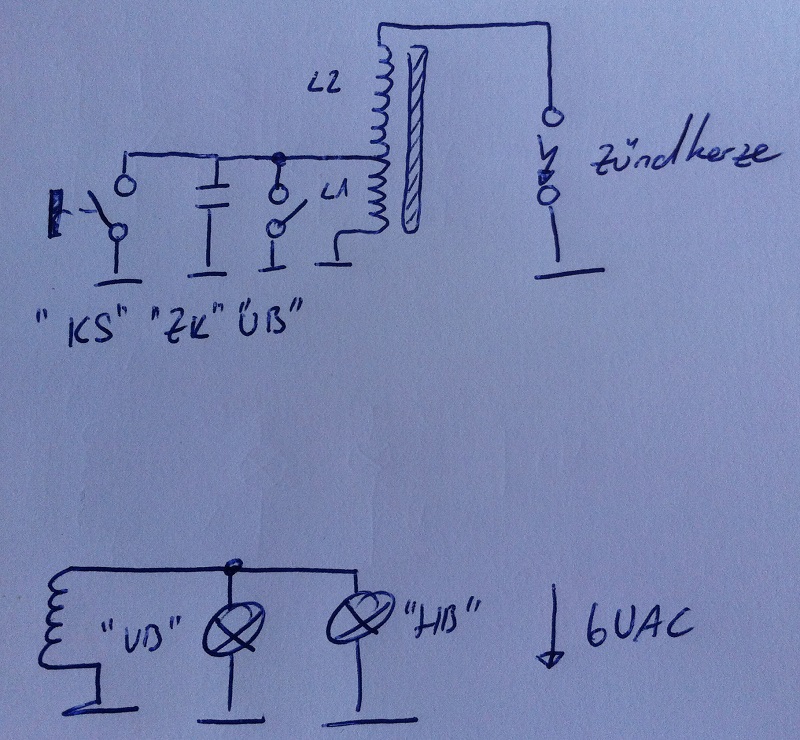 L2
Zündkerze
L1
"KS" "ZK" "ÜB"
"VB"
"HB"
6VAC